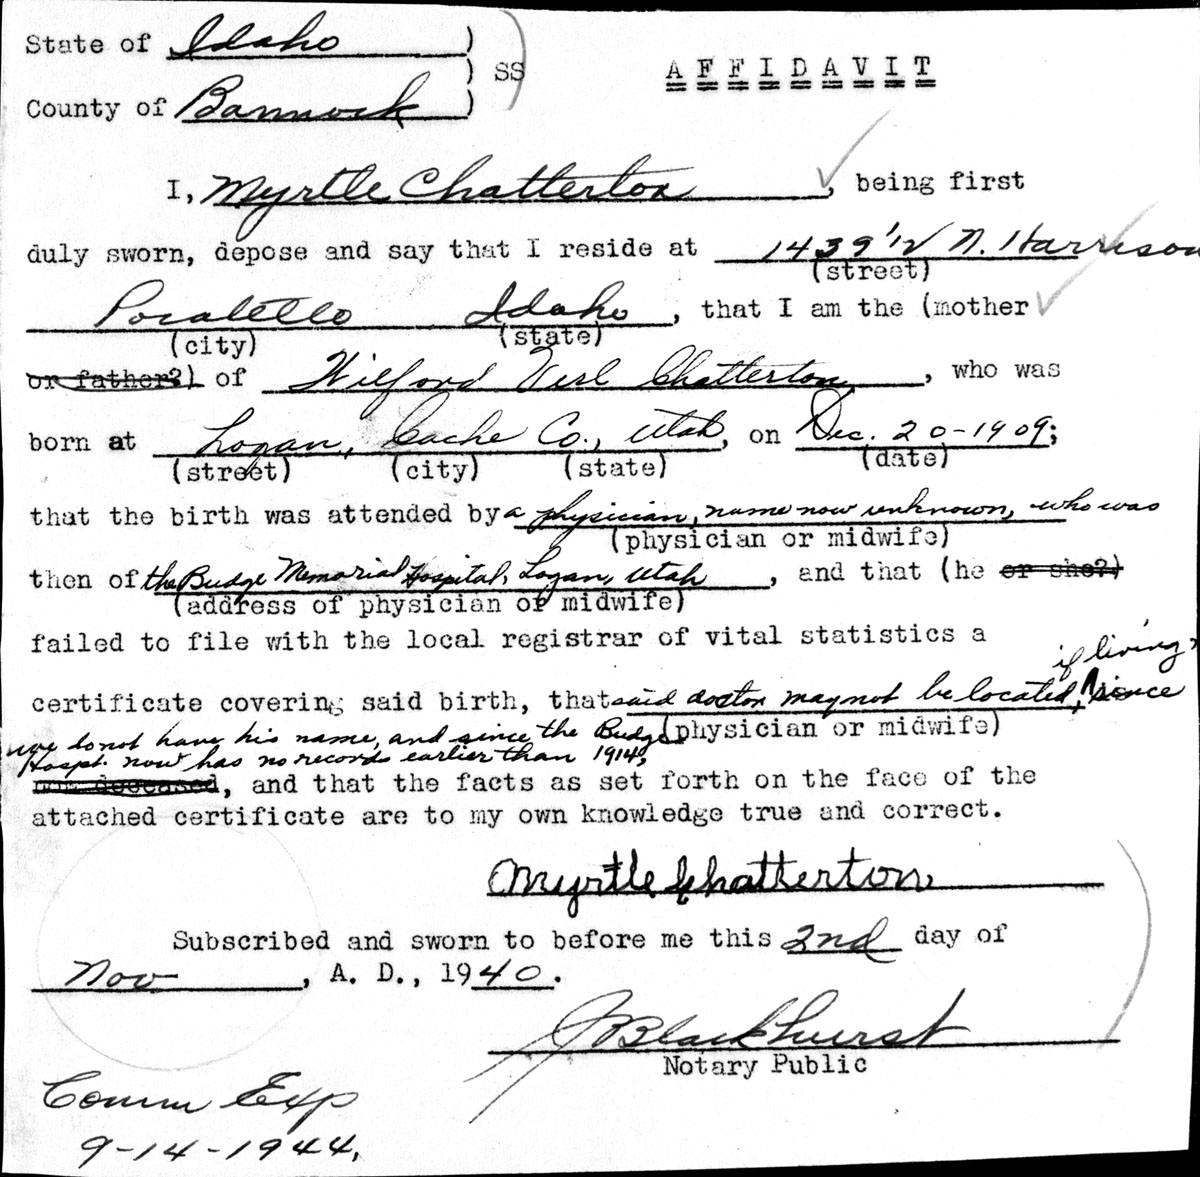 State of Idaho )
) SS)
County of Bannock )
AFFIDAVIT
I, Myrtle Chatterton, being first
duly sworn, depose and say that I reside at 1439 1/2 N. Harrison
(street)
Pocatello Idaho, that I am the (mother
(city) (state)
or father?) of Wilford Verl Chatterton, who was
born at Logan, Cache Co., Utah, on Dec. 20-1909;
(street) (city) (state) (date)
that the birth was attended by a physician, name now unknown, who was
(physician or midwife)
then of the Budge Memorial Hospital, Logan, Utah, and that (he or she?)
(address of physician or midwife)
failed to file with the local registrar of vital statistics a
if living,
certificate covering said birth, that said doctor may not be located, since
(physician or midwife)
we do not have his name, and since the Budge
Hospt. now has no records earlier than 1914,
now deceased, and that the facts as set forth on the face of the
attached certificate are to my own knowledge true and correct.
Myrtle Chatterton
Subscribed and sworn to before me this 2nd day of
Nov, A. D., 1940.
J Blackhurst
Notary Public
Comm Exp
9-14-1944.